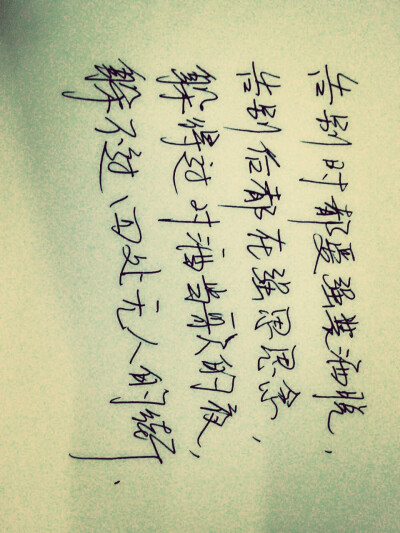 告别时都爱强装洒脱,
告别后都在强忍思念,
躲得过对酒当歌的夜,
躲不过四处无人的街.